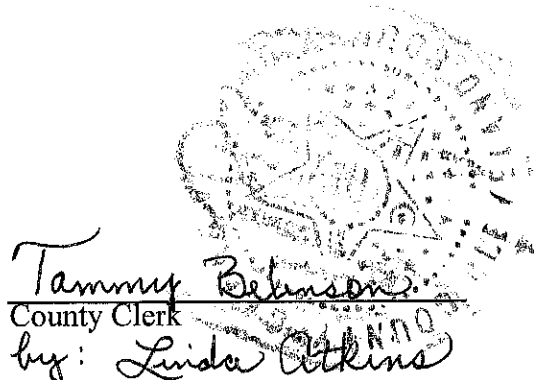 Tammy Belinson
County Clerk
by: Linda Atkins